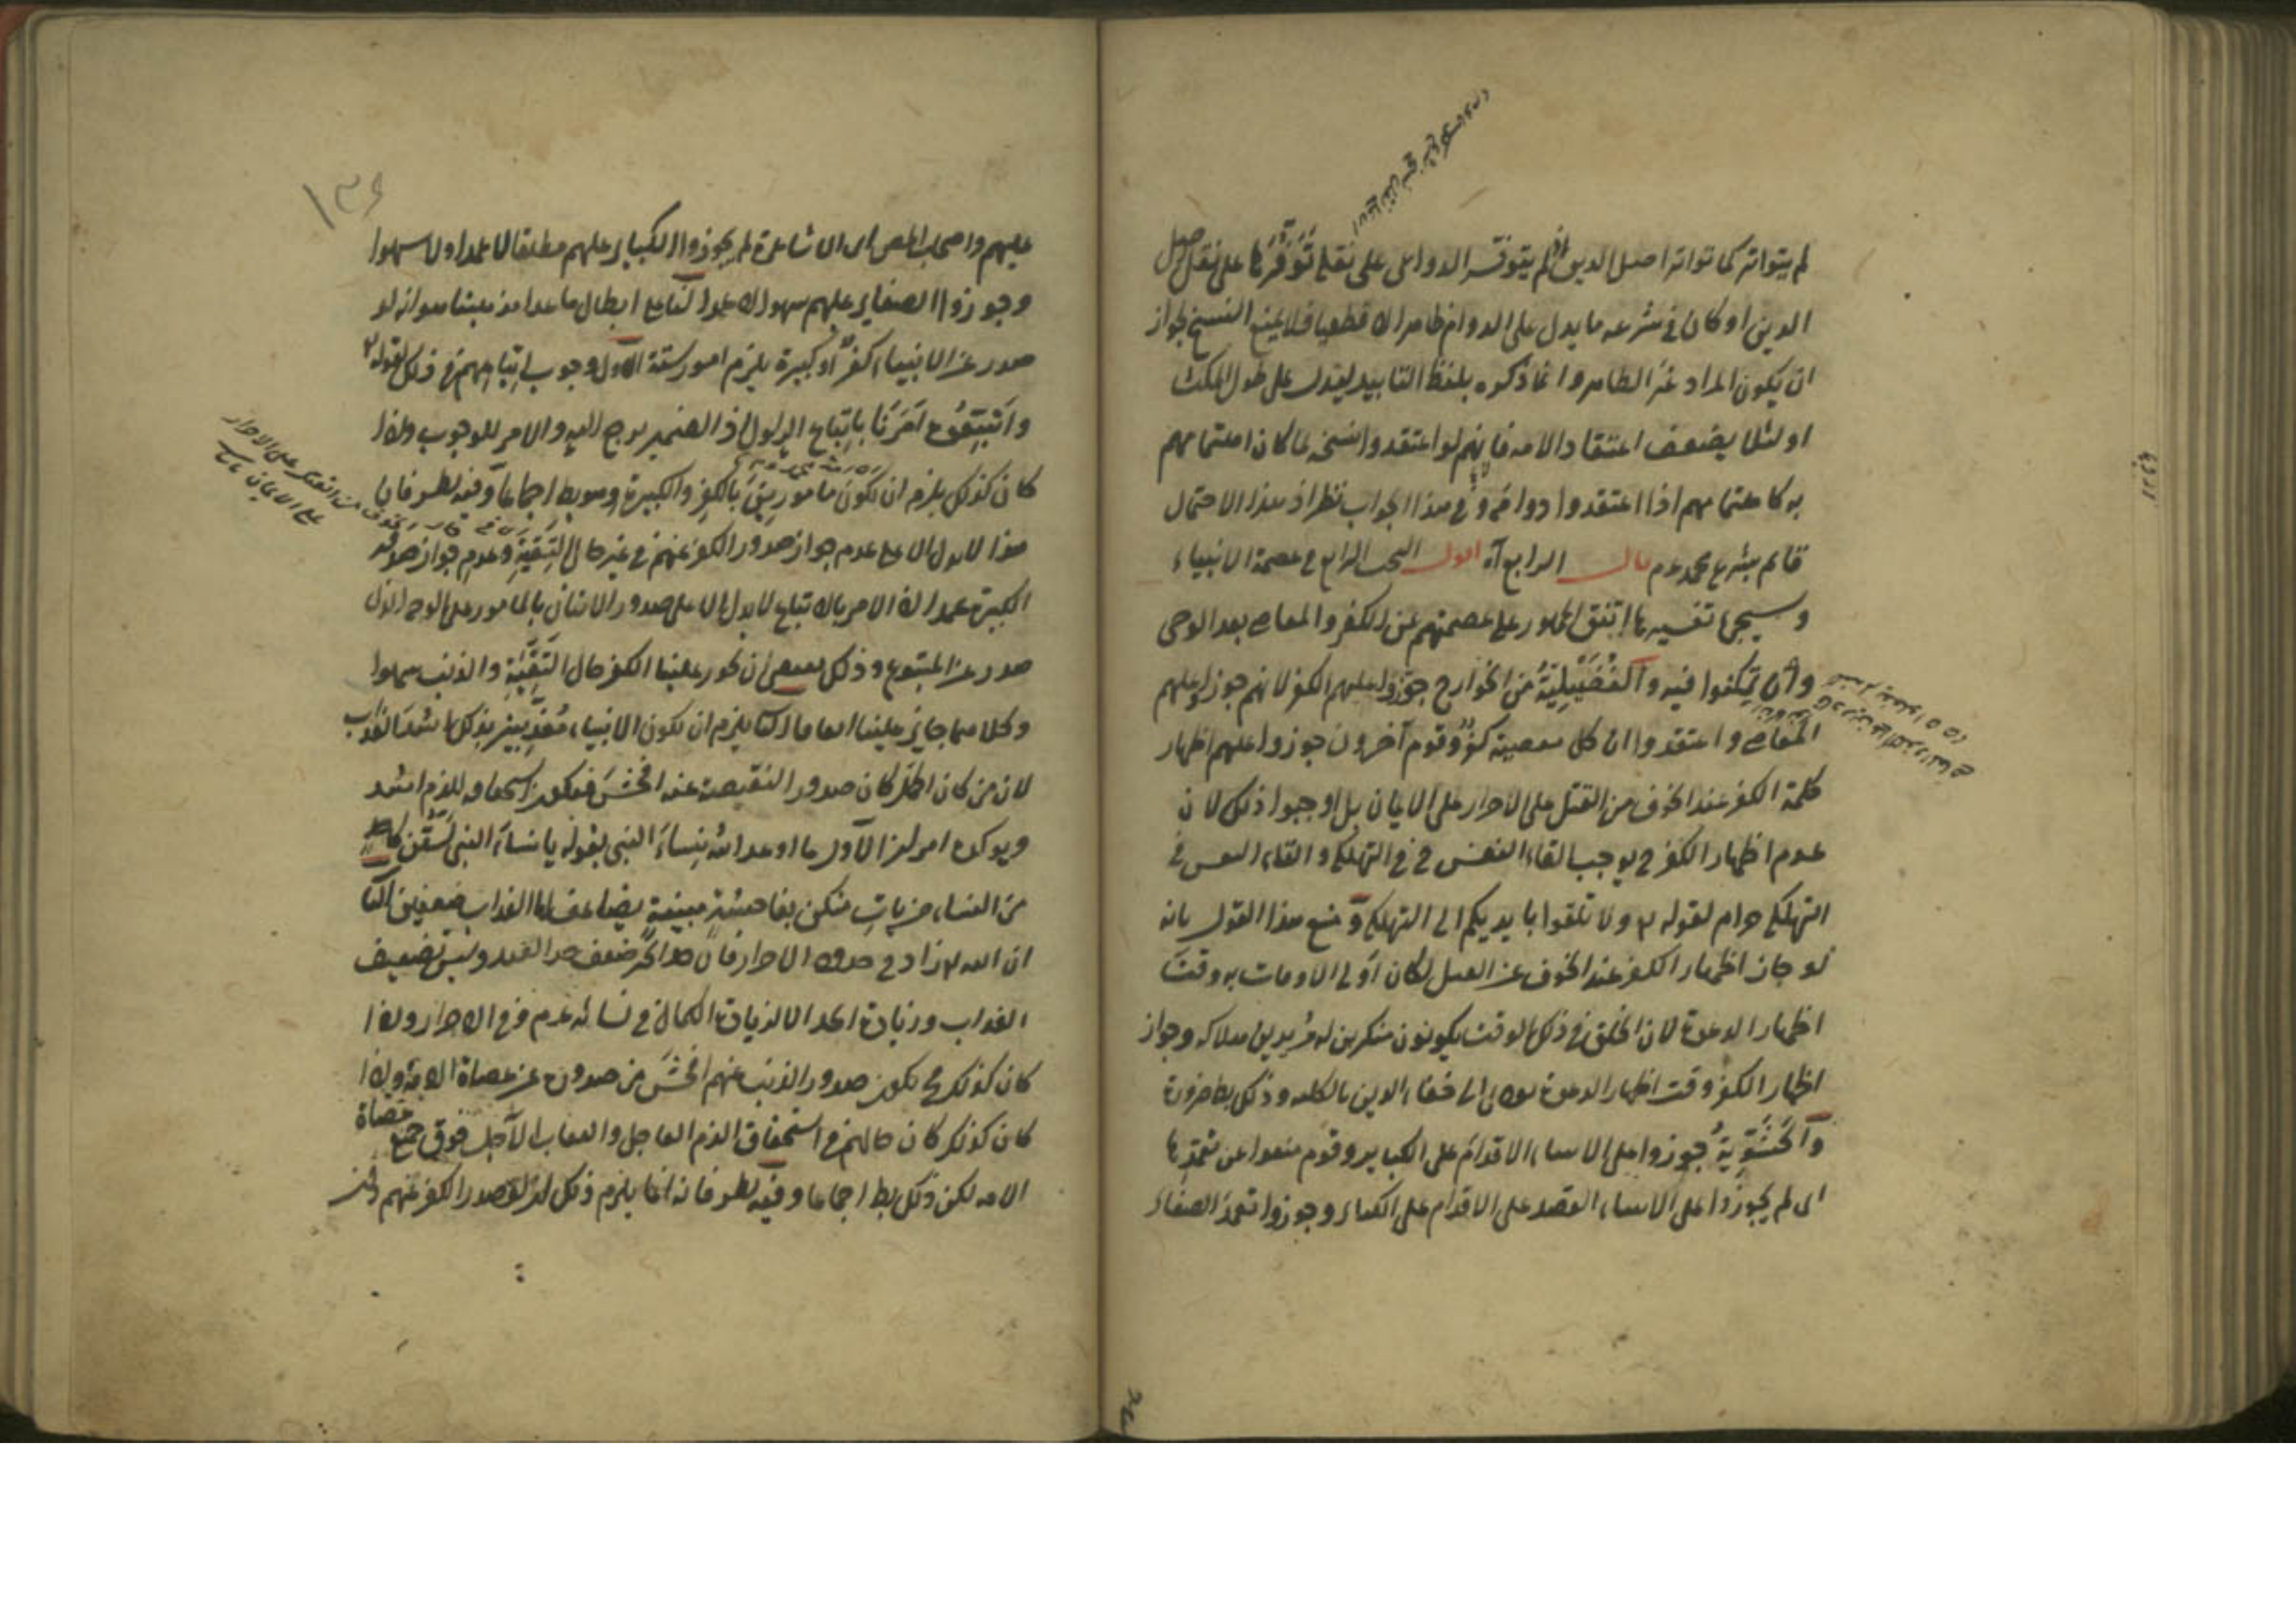 لم يتواتر كما تواتر اصل الدين اذ لم يتوفر الدواعى على نقله توفرها على نقل اصل
الدين او كان فى شرعه ما يدل على الدوام ظاهرا لا قطعيا فلا يمنع النسخ لجواز
ان يكون المراد غير الظاهر وانما ذكره بلفظ التابيد ليدل على طول المكث
او لئلا يضعف اعتقاد الامه فانهم لو اعتقدوا نسخه لما كان اهتمامهم
به كاهتمامهم اذا اعتقدوا دوامه وفى هذا الجواب نظر اذ هذا الاحتمال
قائم بشرع محمد عم قال الرابع آه اقول البحث الرابع فى عصمة الانبياء
وسيجئ تفسيرها اتفق الجمهور على عصمتهم عن الكفر والمعاصى بعد الوحى
والفضيلية من الخوارج جوزوا عليهم الكفر لانهم جوزوا عليهم
المعاصى واعتقدوا ان كل معصية كفر وقوم آخرون جوزوا عليهم اظهار
كلمة الكفر عند الخوف من القتل على الاصرار على الايمان بل اوجبوا ذلك لان
عدم اظهار الكفر ح يوجب القاء النفس فى التهلكة والقاء النفس فى
التهلكة حرام لقوله تع ولا تلقوا بايديكم الى التهلكة ومنع هذا القول بانه
لو جاز اظهار الكفر عند الخوف عن القتل لكان اولى الاوقات به وقت
اظهار الدعوة لان الخلق فى ذلك الوقت يكونون منكرين له مريدين هلاكه وجواز
اظهار الكفر وقت اظهار الدعوة يودى الى خفاء الدين بالكليه وذلك بط ضرورة
والحشوية جوزوا على الانبياء الاقدام على الكباير وقوم منعوا عن تعمدها
اى لم يجوزوا على الانبياء القصد على الاقدام على الكباير وجوزوا تعمد الصغاير
١٣٤
عليهم واصحاب المص اى الاشاعرة لم يجوزوا الكباير عليهم مطلقا لا عمدا ولا سهوا
وجوزوا الصغاير عليهم سهوا لا عمدا لنا على ابطال ما عدا مذهبنا هو انه لو
صدر عن الانبياء كفر او كبيرة يلزم امور ستة الاول وجوب اتباعهم فى ذلك لقوله تع
واتبعوه امرنا باتباع الرسول اذ الضمير يرجع اليه والامر للوجوب ولو
كان كذلك يلزم ان نكون مامورين بالكفر والكبيرة وهو بط اجماعا وفيه نظر فان
هذا لا يدل الا على عدم جواز صدور الكفر عنهم فى غير حال التقية وعدم جواز صدور
الكبيرة عمدا لان الامر بالاتباع لا يدل الا على صدور الاتيان بالمامور على الوجه الذى
صدر عن المتبوع وذلك يقتضى ان يجوز علينا الكفر حال التقية والذنب سهوا
وكلاهما جايز علينا اتفاقا الثانى يلزم ان يكون الانبياء معذبين بذلك اشد العذاب
لان من كان اكمل كان صدور النقيصة عنه افحش فيكون استحقاقه للذم اشد
ويوكد امر لزوم الاول ما اوعد الله نساء النبى بقوله يا نساء النبى لستن كاحد
من النساء من يات منكن بفاحشة مبينة يضاعف لها العذاب ضعفين الثانى
ان الله تع زاد فى حدود الاحرار فان حد الحر ضعف حد العبد وليس تضعيف
العذاب وزيادة الحد الا لزيادة الكمال فى نسائه عم وفى الاحرار ولو
كان كذلك ح يكون صدور الذنب عنهم افحش من صدوره عن عصاة الامة ولو
كان كذلك كان حالهم فى استحقاق الذم العاجل والعقاب الآجل فوق جميع عصاة
الامه لكن ذلك بط اجماعا وفيه نظر فانه انما يلزم ذلك لو صدر الكفر عنهم